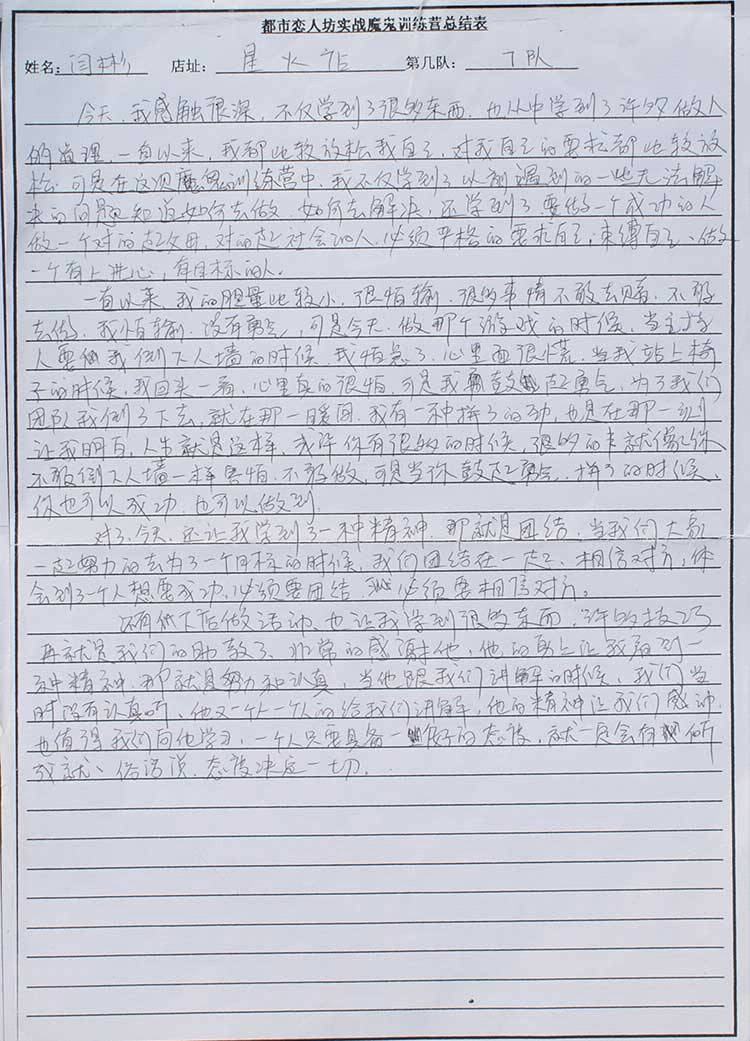 都市恋人坊实战魔鬼训练营总结表
姓名: 闫彬 店址: 星火店 第几队: 丁队
今天,我感触很深,不仅学到了很多东西,也从中学到了许多做人
的道理,一直以来,我都比较放松我自己,对我自己的要求都比较放
松,可是在这次魔鬼训练营中,我不仅学到了以前遇到的一些无法解
决的问题,知道如何去做,如何去解决,还学到了要做一个成功的人
做一个对的起父母,对的起社会的人,必须严格的要求自己,束缚自己、做
一个有上进心,有目标的人。
一直以来,我的胆量比较小,很怕输,很多事情不敢去赌,不敢
去做,我怕输,没有勇气,可是今天,做那个游戏的时候,当主持
人要我倒下人墙的时候,我怕急了,心里面很慌,当我站上椅
子的时候,我回头一看,心里真的很怕,可是我鼓起勇气,为了我们
团队我倒了下去,就在那一瞬间,我有一种拼了的,也是在那一刻
让我明白,人生就是这样,或许你有很多的时候,很多的就像你
不敢倒下人墙一样害怕,不敢做,可是当你鼓起勇气,拼了的时候、
你也可以成功,也可以做到
对了,今天,还让我学到了一种精神,那就是团结,当我们大家
一起努力的去为了一个目标的时候,我们团结在一起,相信对方,体
会到了一个人想要成功,必须要团结,必须要相信对方。
还有低下店做活动,也让我学到很多东西,许多技巧
再就是我们的助教了、非常的感谢他,他的身上让我看到一
种精神,那就是努力和认真,当他跟我们讲解的时候,我们当
时没有认真听、他又一个人一个人的给我们讲解,他的精神让我们感动,
也值得我们向他学习,一个人只要具备一好的态度,就一定会有所
成就、俗话说,态度决定一切.